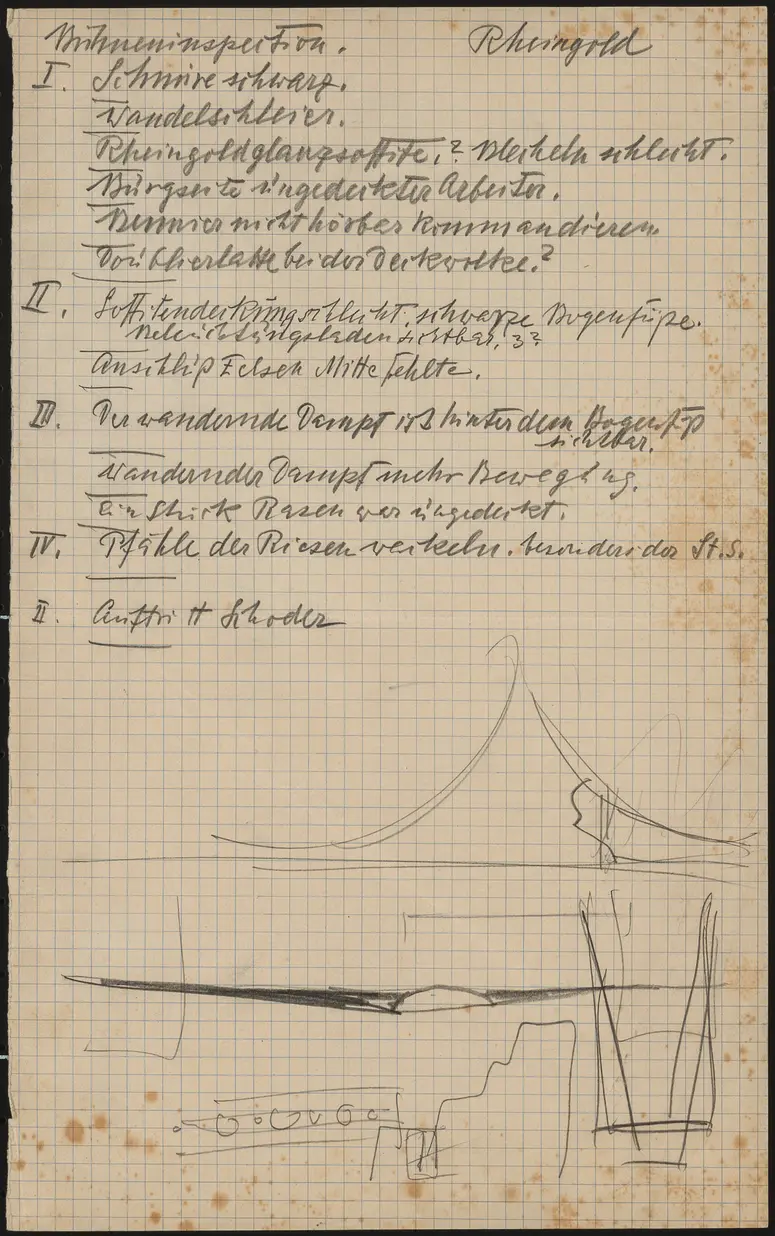 Bühneninspection. Rheingold
I. Schnüre schwarz.
Wandelschleier.
Rheingoldglanzsoffite.? schlecht.
Bürgseite ungedeckter Arbeiter.
nicht hörbar kommandieren
bei der Deckwolke?
II. Soffitendeckung schlecht, schwarze Bogenfüße.
Beleuchtungsladen sichtbar. ??
Anschluß Felsen Mitte fehlte.
III. Der wandernde Dampf ist hinter dem Bogenfuß
sichtbar.
Wandernder Dampf mehr Bewegung.
Ein Stück Rasen war ungedeckt.
IV. Pfähle der Riesen wackeln. besonders der St. S.
II. Auftritt Schoder